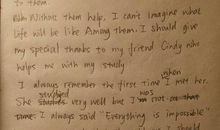 to them.
Without them help, I can't imagine what
life will be like Among them, I should give
my special thanks to my friend Cindy who
helps me with my study
when
I always remember the first time I met her.
studied was
She studies very well but I'm not at that
time. I always said "Everything is impossible"